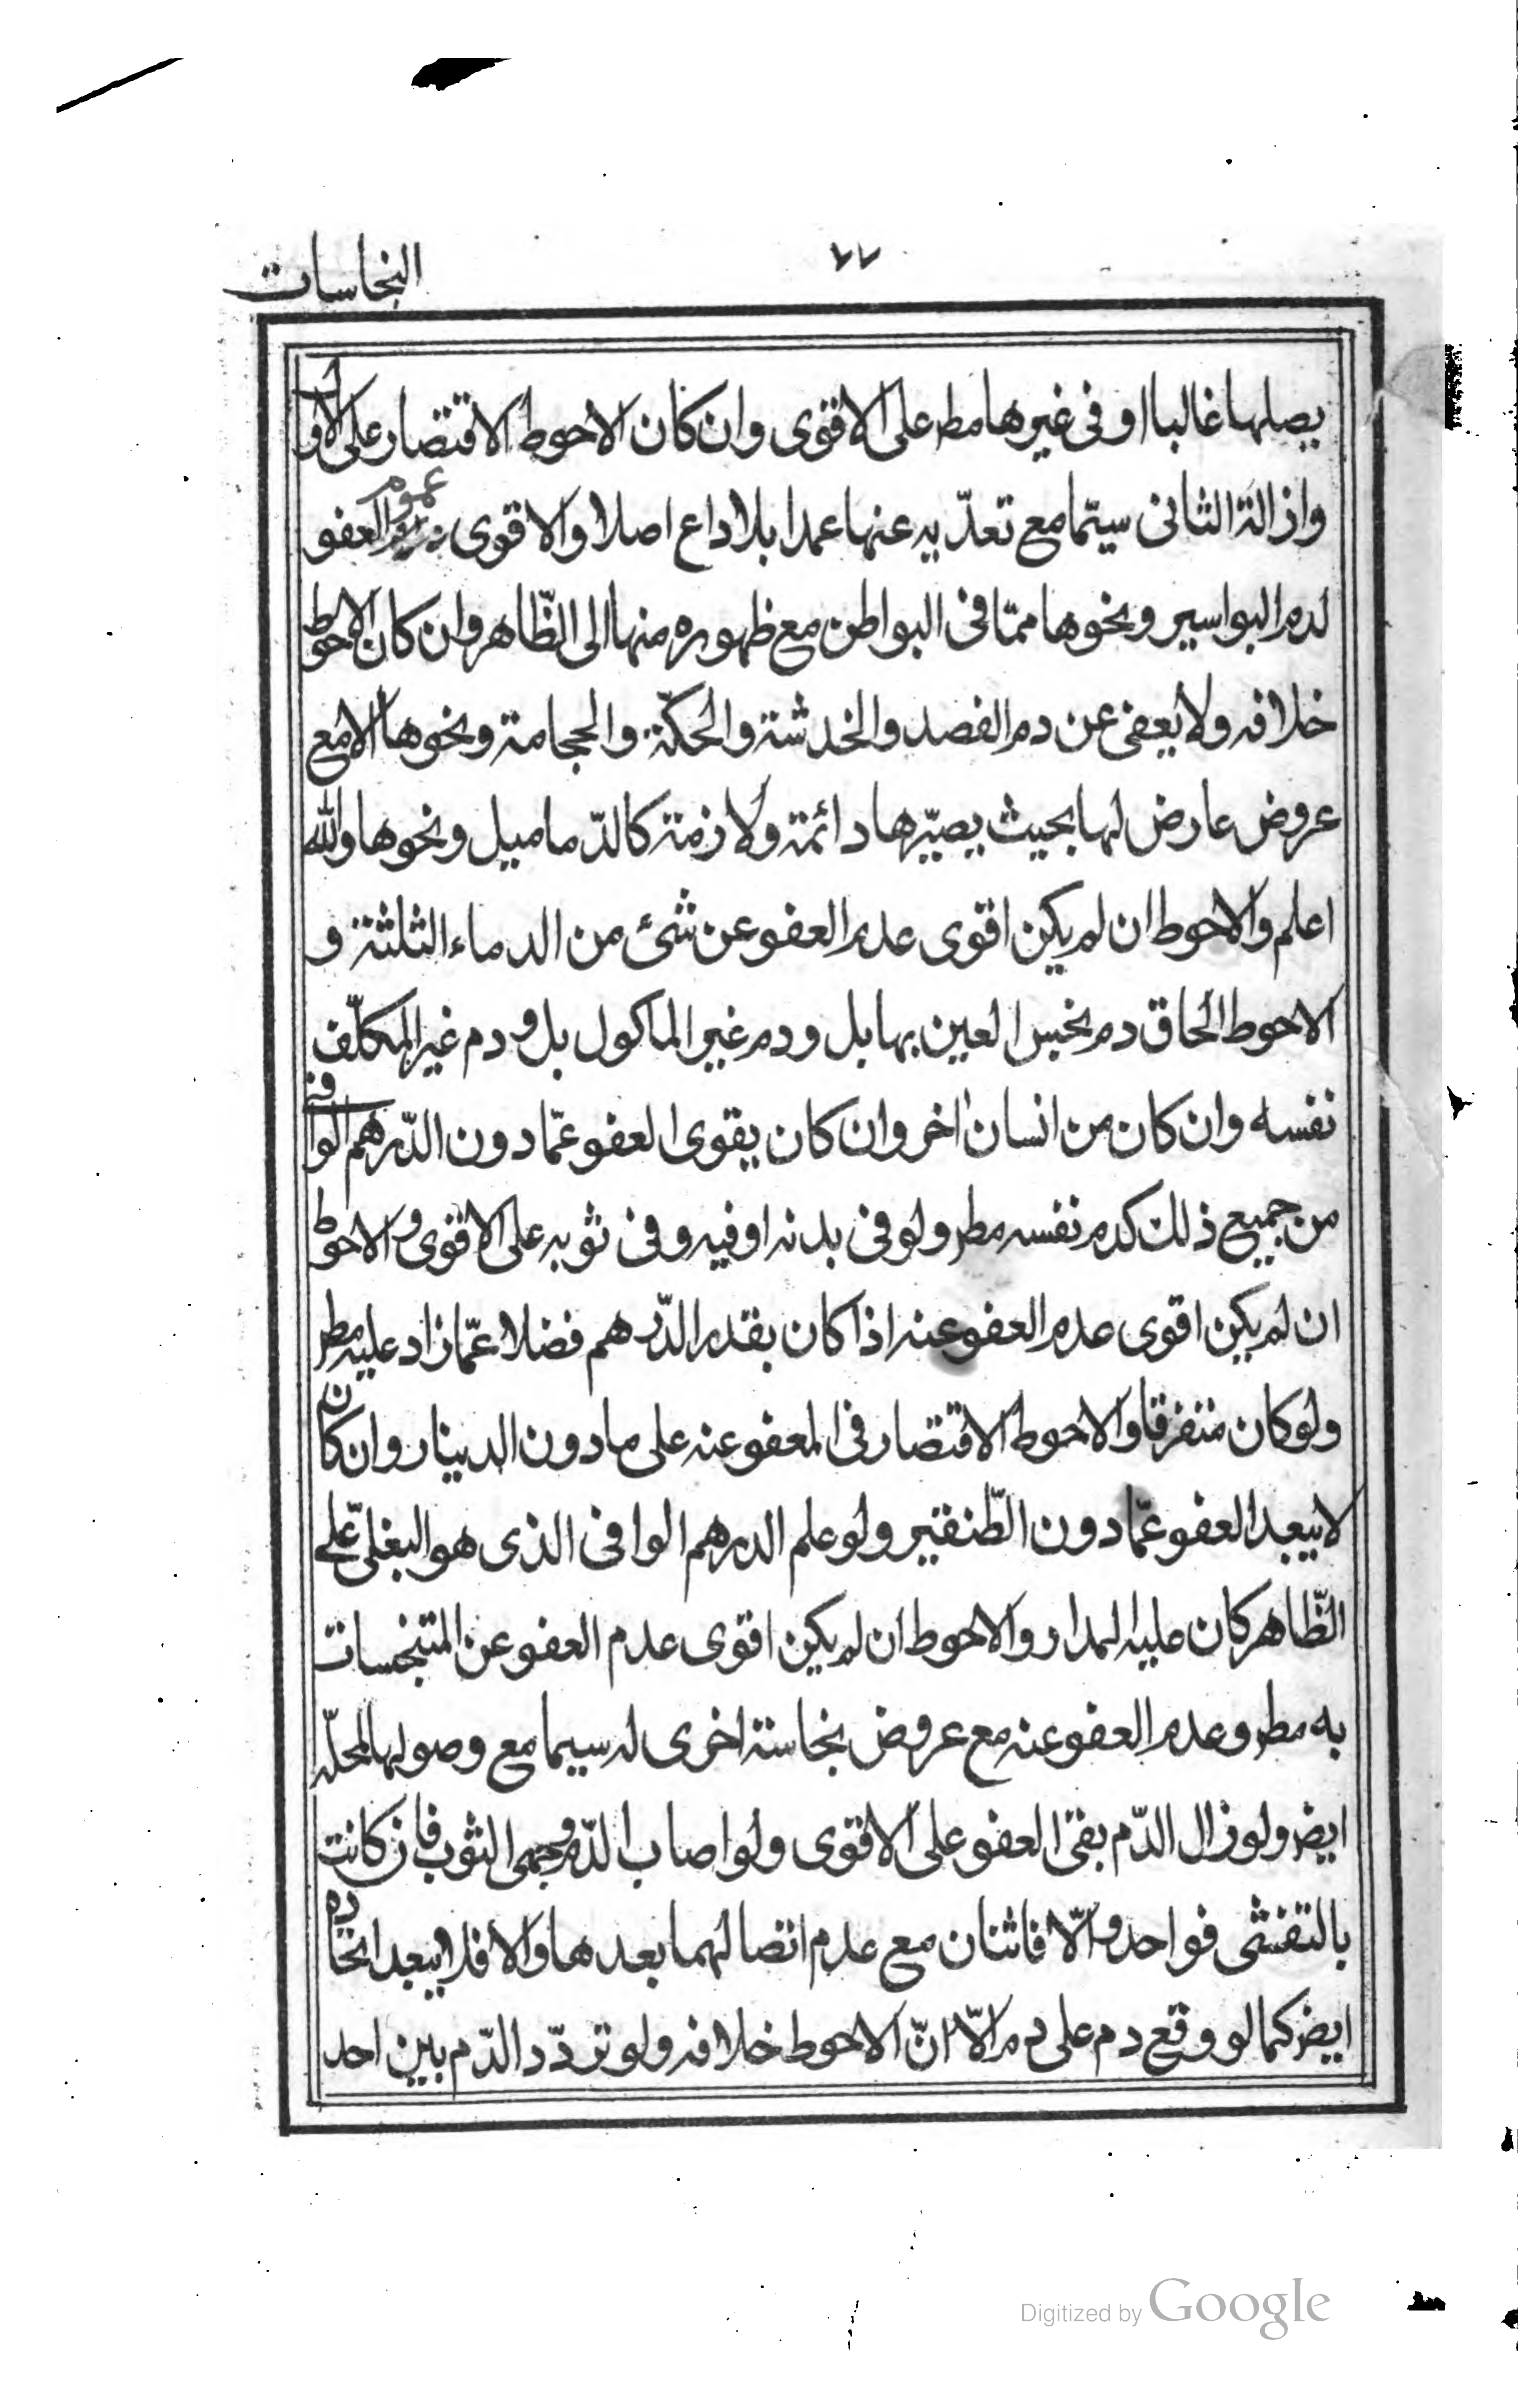 ٧٧
النجاسات
يصلها غالبا او فى غيرها مطر على الاقوى وان كان الاحوط الاقتصار على الاول
وازالة الثانى سيّما مع تعدّيه عنها عمدا بلا داع اصلا والاقوى عموم العفو
لدم البواسير ونحوها ممّا فى البواطن مع ظهوره منها الى الظّاهر وان كان الاحوط
خلافه ولا يعفى عن دم الفصد والخدشة والحكّة والحجامة ونحوها الا مع
عروض عارض لها بحيث يصيّرها دائمة ولازمة كالدّماميل ونحوها والله
اعلم والاحوط ان لم يكن اقوى عدم العفو عن شئ من الدماء الثلثة و
الاحوط الحاق دم نجس العين بها بل ودم غير الماكول بل ودم غير المكلّف
نفسه وان كان من انسان اخر وان كان يقوى العفو عمّا دون الدّرهم الوافى
من جميع ذلك كدم نفسه مطر ولو فى بدنه او فيه وفى ثوبه على الاقوى والاحوط
ان لم يكن اقوى عدم العفو عنه اذا كان بقدر الدّرهم فضلا عمّا زاد عليه مطر
ولو كان متفرقا والاحوط الاقتصار فى المعفو عنه على ما دون الدينار وان كان
لا يبعد العفو عمّا دون الطّنقتير ولو علم الدرهم الوافى الذى هو البغلىّ على
الظّاهر كان عليه المدار والاحوط ان لم يكن اقوى عدم العفو عن المتنجسات
به مطر وعدم العفو عنه مع عروض نجاسة اخرى له سيما مع وصولها لمحلّه
ايضر ولو زال الدّم بقى العفو على الاقوى ولو اصاب الدّم وجهى الثوب فان كانت
بالتفشى فواحد والّا فاثنان مع عدم اتصالهما بعدها والا فلا يبعد اتحاده
ايضر كما لو وقع دم على دم الّا انّ الاحوط خلافه ولو تردّد الدّم بين احد
Digitized by Google